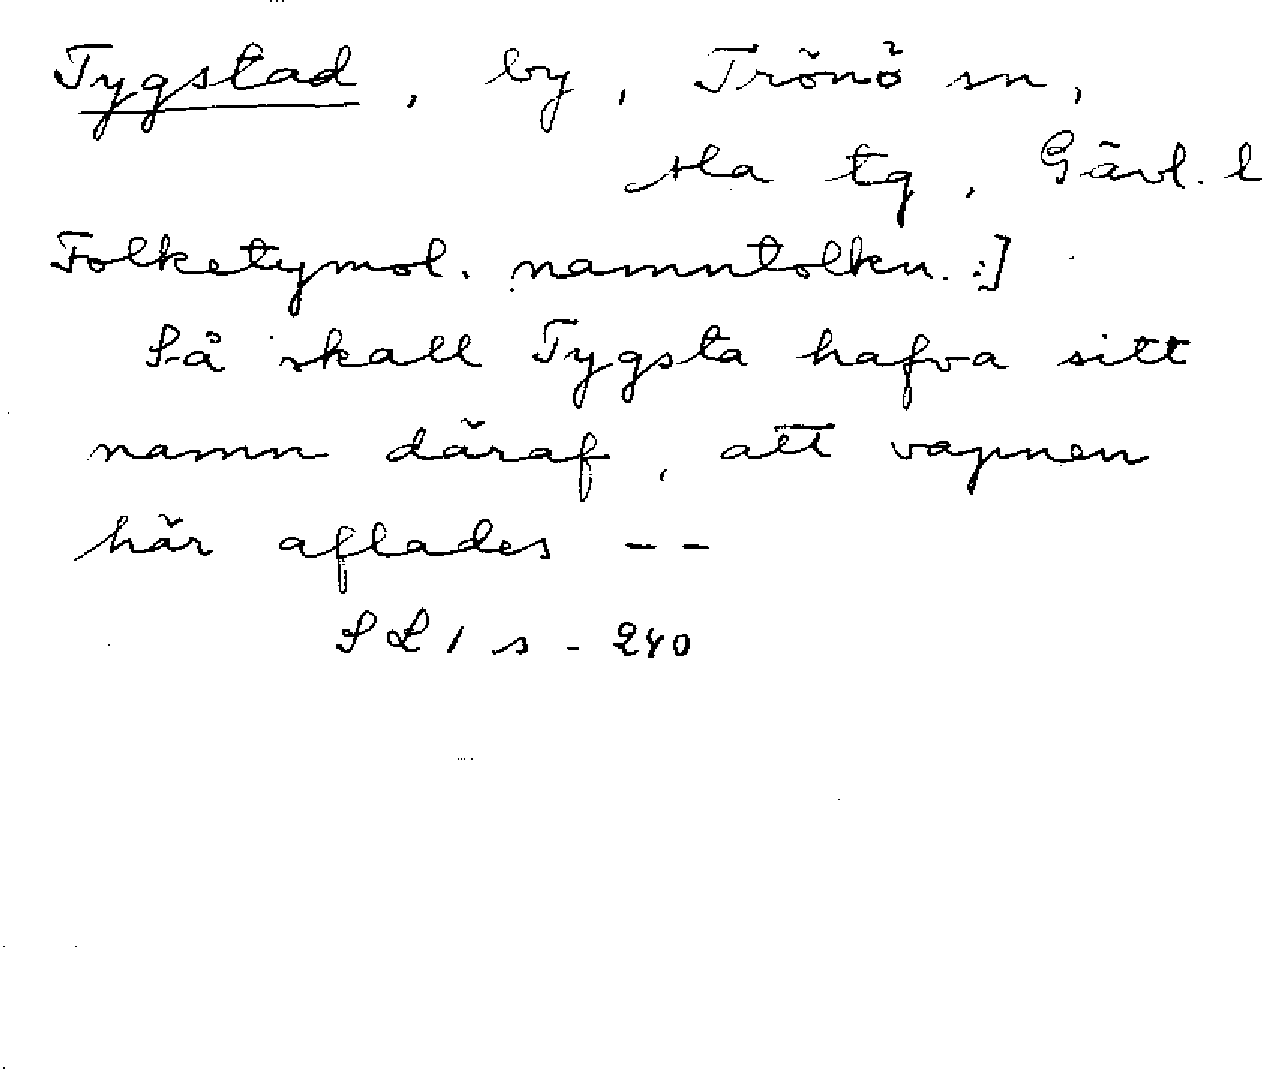 Tygstad, by, Trönö sn,
Ala tg, Gävl. l
Folketymol. namntolkn. :]
Så skall Tygsta hafva sitt
namn däraf, att vapnen
här aflades --
SL 1 s. 240